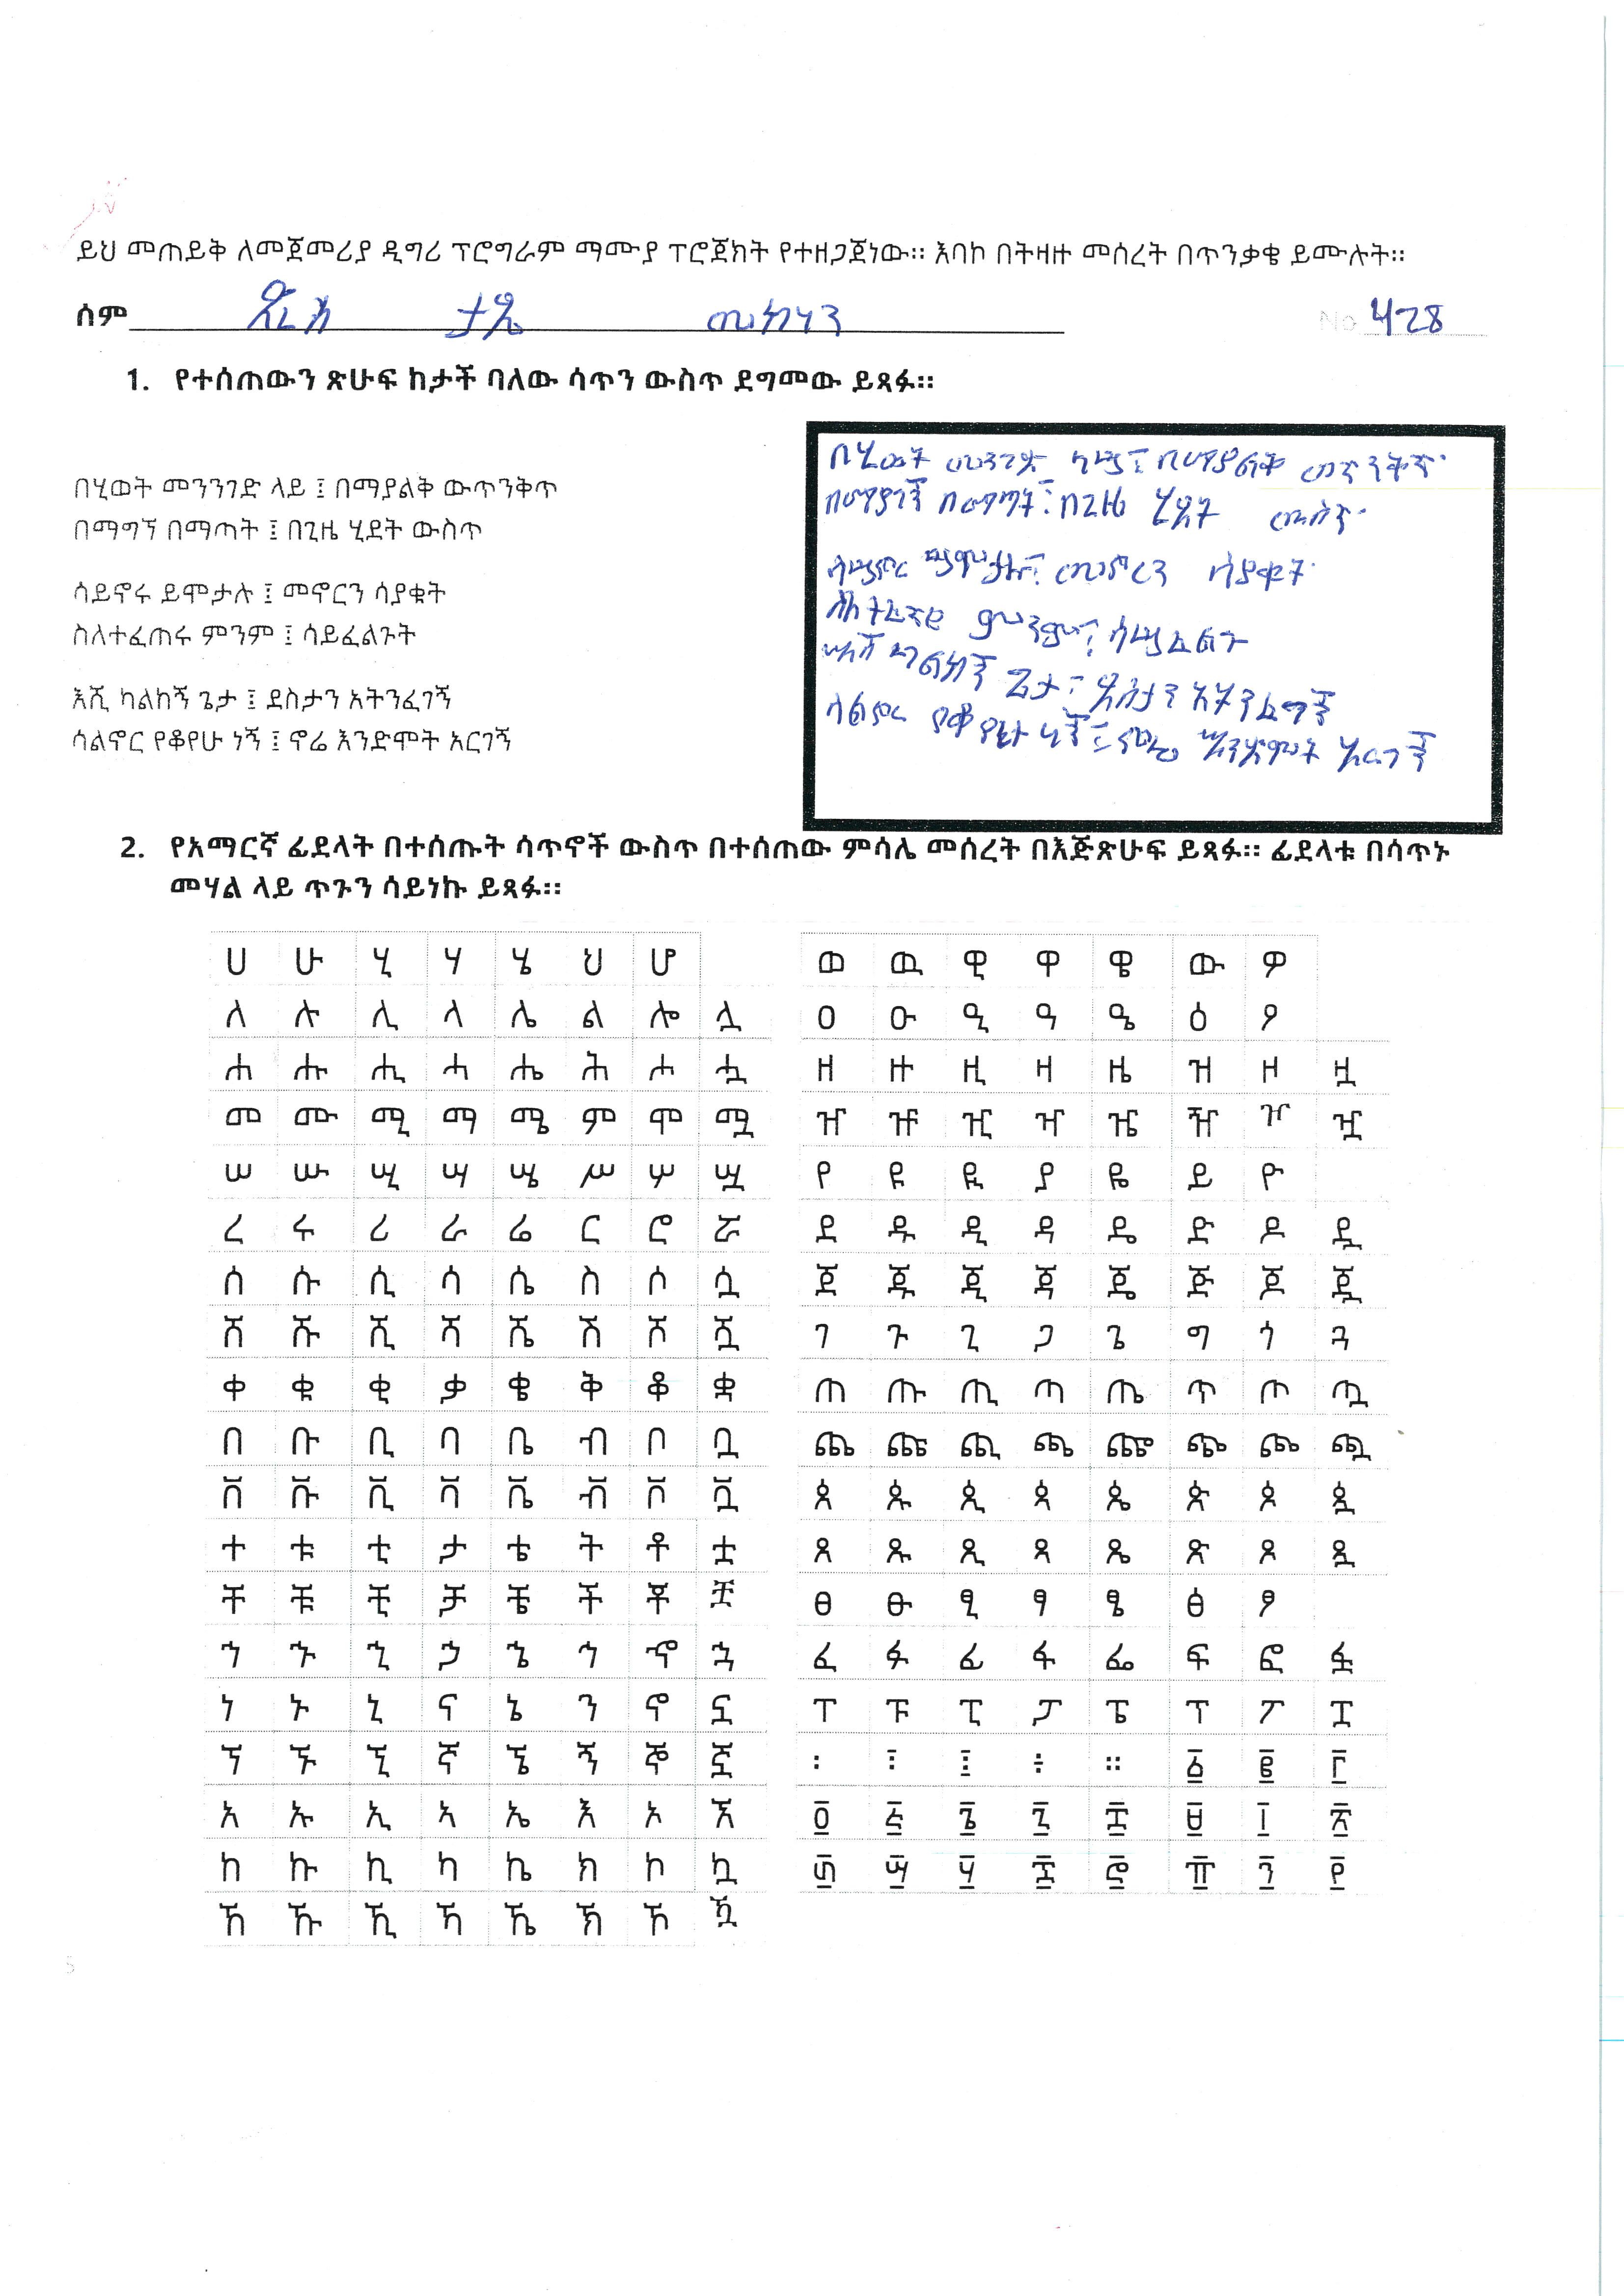 ይህ መጠይቅ ለመጀመሪያ ዲግሪ ፕሮግራም ማሙያ ፕሮጀክት የተዘጋጀነው። እባኮ በትዛዙ መሰረት በጥንቃቄ ይሙሉት።
ሰም ታዴ መኮነን No 428
1. የተሰጠውን ጽሁፍ ከታች ባለው ሳጥን ውስጥ ደግመው ይጻፉ።
በሂወት መንንገድ ላይ ፤ በማያልቅ ውጥንቅጥ
በማግኘ በማጣት ፤ በጊዜ ሂደት ውስጥ
ሳይኖሩ ይሞታሉ ፤ መኖርን ሳያቁት
ስለተፈጠሩ ምንም ፤ ሳይፈልጉት
እሺ ካልከኝ ጌታ ፤ ደስታን አትንፈገኝ
ሳልኖር የቆየሁ ነኝ ፤ ኖሬ እንድሞት አርገኝ
በሂወት መንገድ ላይ ፤ በማያልቅ
በማያገኝ በማጣት ፤ በጊዜ ሂደት
ሳይኖር ይሞታሉ ፤ መኖረን ሳያቁት
ምንም ፤ ሳይፈልጉ
ካልከኝ ጌታ ፤ ደስታን አትንፈግኝ
ሳልኖር የቆየሁ ነኝ ፤ ኖሬ እንድሞት አርገኝ
2. የአማርኛ ፊደላት በተሰጡት ሳጥኖች ውስጥ በተሰጠው ምሳሌ መሰረት በእጅጽሁፍ ይጻፉ። ፊደላቱ በሳጥኑ
መሃል ላይ ጥጉን ሳይነኩ ይጻፉ።
ሀ ሁ ሂ ሃ ሄ ህ ሆ
ለ ሉ ሊ ላ ሌ ል ሎ ሏ
ሐ ሑ ሒ ሓ ሔ ሕ ሖ ሗ
መ ሙ ሚ ማ ሜ ም ሞ ሟ
ሠ ሡ ሢ ሣ ሤ ሥ ሦ ሧ
ረ ሩ ሪ ራ ሬ ር ሮ ሯ
ሰ ሱ ሲ ሳ ሴ ስ ሶ ሷ
ሸ ሹ ሺ ሻ ሼ ሽ ሾ ሿ
ቀ ቁ ቂ ቃ ቄ ቅ ቆ ቋ
በ ቡ ቢ ባ ቤ ብ ቦ ቧ
ቨ ቩ ቪ ቫ ቬ ቭ ቮ ቯ
ተ ቱ ቲ ታ ቴ ት ቶ ቷ
ቸ ቹ ቺ ቻ ቼ ች ቾ ቿ
ኀ ኁ ኂ ኃ ኄ ኅ ኆ ኋ
ነ ኑ ኒ ና ኔ ን ኖ ኗ
ኘ ኙ ኚ ኛ ኜ ኝ ኞ ኟ
አ ኡ ኢ ኣ ኤ እ ኦ ኧ
ከ ኩ ኪ ካ ኬ ክ ኮ ኳ
ኸ ኹ ኺ ኻ ኼ ኽ ኾ ዃ
ወ ዉ ዊ ዋ ዌ ው ዎ
ዐ ዑ ዒ ዓ ዔ ዕ ዖ
ዘ ዙ ዚ ዛ ዜ ዝ ዞ ዟ
ዠ ዡ ዢ ዣ ዤ ዥ ዦ ዧ
የ ዩ ዪ ያ ዬ ይ ዮ
ደ ዱ ዲ ዳ ዴ ድ ዶ ዷ
ጀ ጁ ጂ ጃ ጄ ጅ ጆ ጇ
ገ ጉ ጊ ጋ ጌ ግ ጎ ጓ
ጠ ጡ ጢ ጣ ጤ ጥ ጦ ጧ
ጨ ጩ ጪ ጫ ጬ ጭ ጮ ጯ
ጰ ጱ ጲ ጳ ጴ ጵ ጶ ጷ
ጸ ጹ ጺ ጻ ጼ ጽ ጾ ጿ
ፀ ፁ ፂ ፃ ፄ ፅ ፆ
ፈ ፉ ፊ ፋ ፌ ፍ ፎ ፏ
ፐ ፑ ፒ ፓ ፔ ፕ ፖ ፗ
፡ ፣ ፤ ÷ ። ፩ ፪ ፫
፬ ፭ ፮ ፯ ፰ ፱ ፲ ፳
፴ ፵ ፶ ፷ ፸ ፹ ፺ ፻